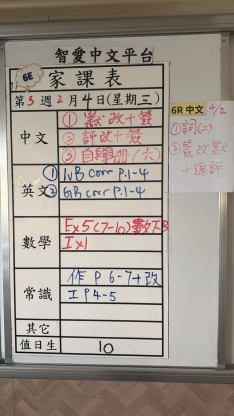 智愛中文平台
6E
家課表
第3週2月4日(星期三)
中文
①默改+簽
②評改+簽
③自學冊(六)
英文
①WB corr P.1-4
②GB corr P.1-4
數學
Ex5(7-10)
1x1
常識
作 P 6-7+改
工 P4-5
其它
值日生
10
6R 中文 4/2
①詞(二)
②簽改默